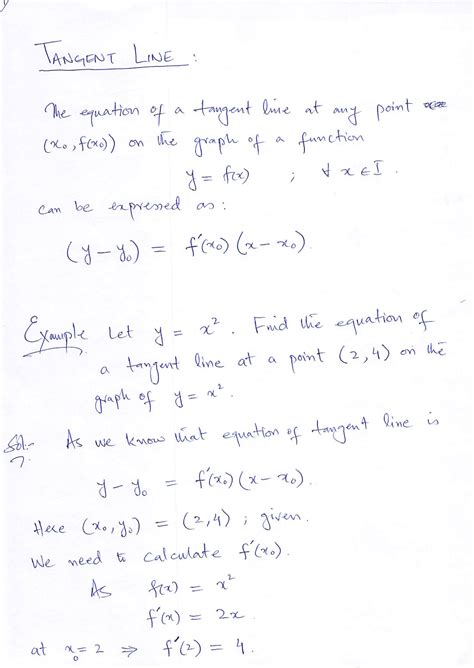 TANGENT LINE :
The equation of a tangent line at any point
(x₀, f(x₀)) on the graph of a function
y = f(x) ; ∀ x ∈ I.
can be expressed as :
(y – y₀) = f'(x₀) (x – x₀).
Example Let y = x². Find the equation of
a tangent line at a point (2, 4) on the
graph of y = x².
Sol:- As we know that equation of tangent line is
y – y₀ = f'(x₀) (x – x₀).
Here (x₀, y₀) = (2, 4) ; given.
We need to calculate f'(x₀).
As f(x) = x²
f'(x) = 2x.
at x₀ = 2 ⇒ f'(2) = 4.